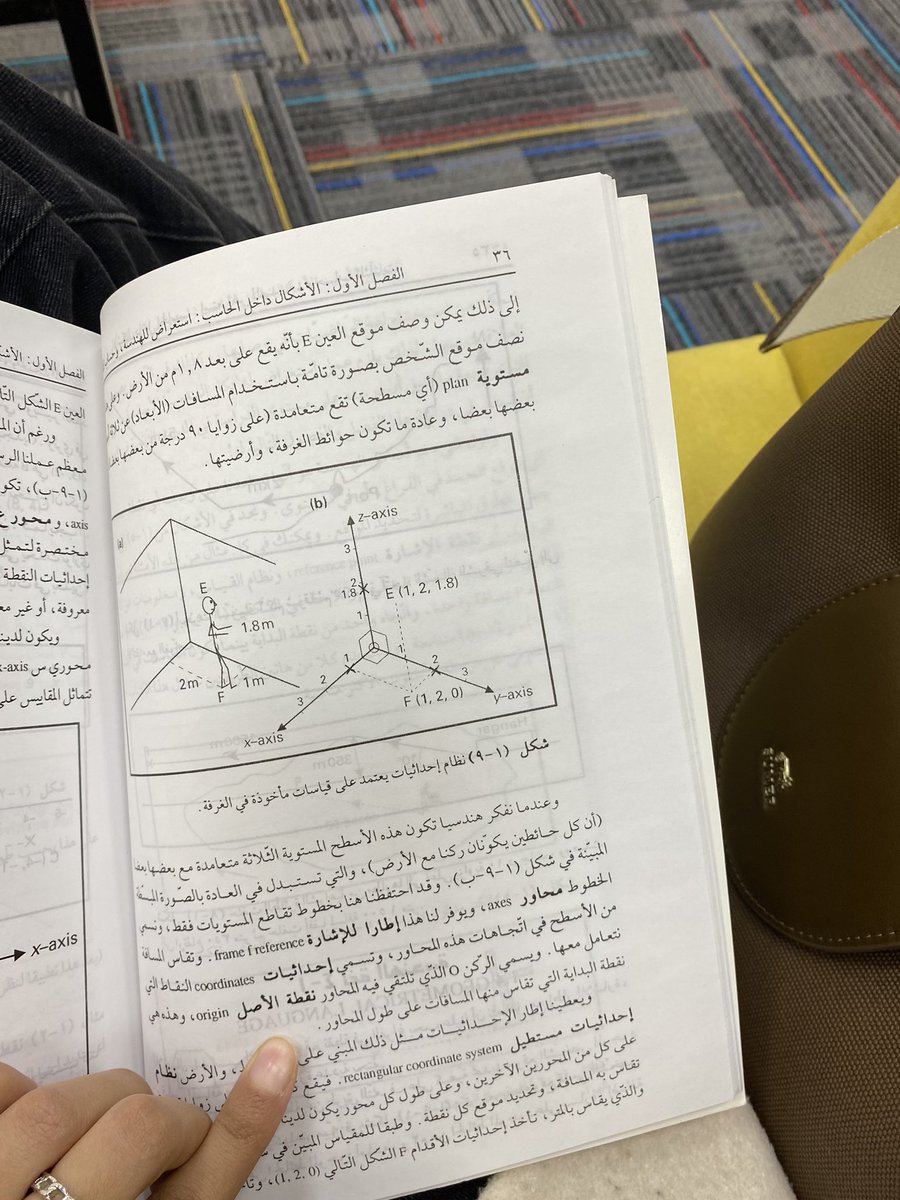 ٣٦
الفصل الأول : الأشكال داخل الحاسب : استعراض للهندسة
إلى ذلك يمكن وصف موقع العين E بأنّه يقع على بعد ١,٨م من الأرض.
نصف موقع الشّخص بصورة تامّة باستخدام المسافات (الأبعاد) عن
مستوية plan (أي مسطحة) تقع متعامدة (على زوايا ٩٠ درجة من بعضها
بعضها بعضا، وعادة ما تكون حوائط الغرفة، وأرضيتها.
(a)
E
1.8m
2m
1m
F
(b)
z-axis
3
2
1.8
E (1, 2, 1.8)
1
1
1
2
2
3
3
F (1, 2, 0)
y-axis
x-axis
شكل (١-٩) نظام إحداثيات يعتمد على قياسات مأخوذة في الغرفة.
وعندما نفكر هندسيا تكون هذه الأسطح المستوية الثّلاثة متعامدة مع بعضها
(أن كل حائطين يكوّنان ركنا مع الأرض)، والتي تستبدل في العادة بالصّورة المبسّطة
المبيّنة في شكل (١-٩-ب). وقد احتفظنا هنا بخطوط تقاطع المستويات فقط، ونسمي
الخطوط محاور axes، ويوفر لنا هذا إطارا للإشارة frame f reference. وتقاس المسافة
من الأسطح في اتّجاهات هذه المحاور، وتسمي إحداثيات coordinates النقاط التي
نتعامل معها. ويسمي الركن O الّذي تلتقي فيه المحاور نقطة الأصل origin، وهذه هي
نقطة البداية التي تقاس منها المسافات على طول المحاور.
ويعطينا إطار الإحداثيات مثل ذلك المبني على والأرض نظام
إحداثيات مستطيل rectangular coordinate system. فيقع
على كل من المحورين الآخرين، وعلى طول كل محور يكون لدينا
تقاس به المسافة، وتحديد موقع كل نقطة. وطبقا للمقياس المبيّن في
والّذي يقاس بالمتر، تأخذ إحداثيات الأقدام F الشكل التّالي (1, 2, 0)،
الفصل الأول :
العين E الشكل
ورغم أن
معظم عملنا
(١-٩-ب)، تكو
axis، ومحور
مختصرة لتمثل
إحداثيات النقطة
معروفة، أو غير
ويكون لدينا
محوري س x-axis
تتماثل المقاييس
x-axis